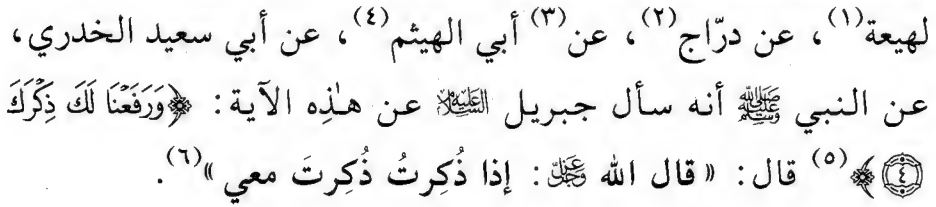 لهيعة(١)، عن درّاج(٢)، عن(٣) أبي الهيثم(٤)، عن أبي سعيد الخدري،
عن النبي ﷺ أنه سأل جبريل عليه السلام عن هٰذِه الآية: ﴿وَرَفَعْنَا لَكَ ذِكْرَكَ
(٤)﴾(٥) قال: «قال الله عز وجل: إذا ذُكِرتُ ذُكِرتَ معي»(٦).